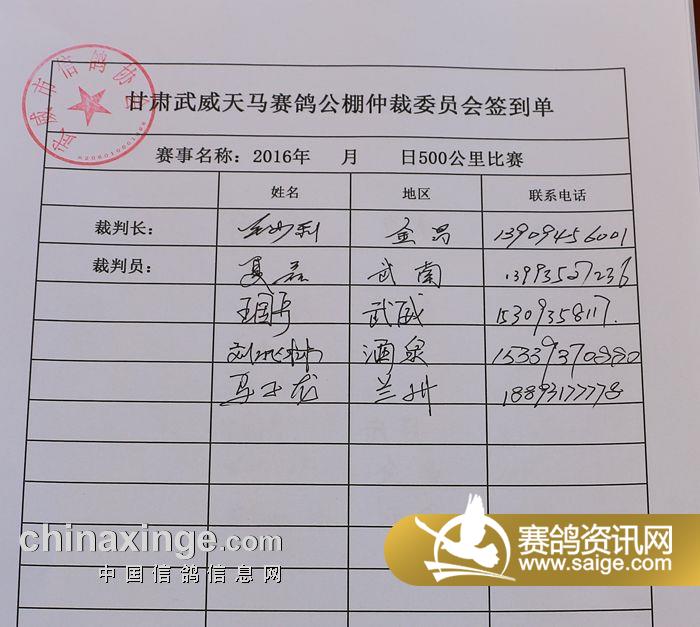 武威市信鸽协会
甘肃武威天马赛鸽公棚仲裁委员会签到单
赛事名称：2016年 月 日500公里比赛
姓名 地区 联系电话
裁判长： 金昌 13909456001
裁判员： 夏磊 武南 13993527236
武威 15309358117.
酒泉 15339370880
马玉龙 兰州 18893177778
chinaxinge.com
中国信鸽信息网
赛鸽资讯网
www.saige.com